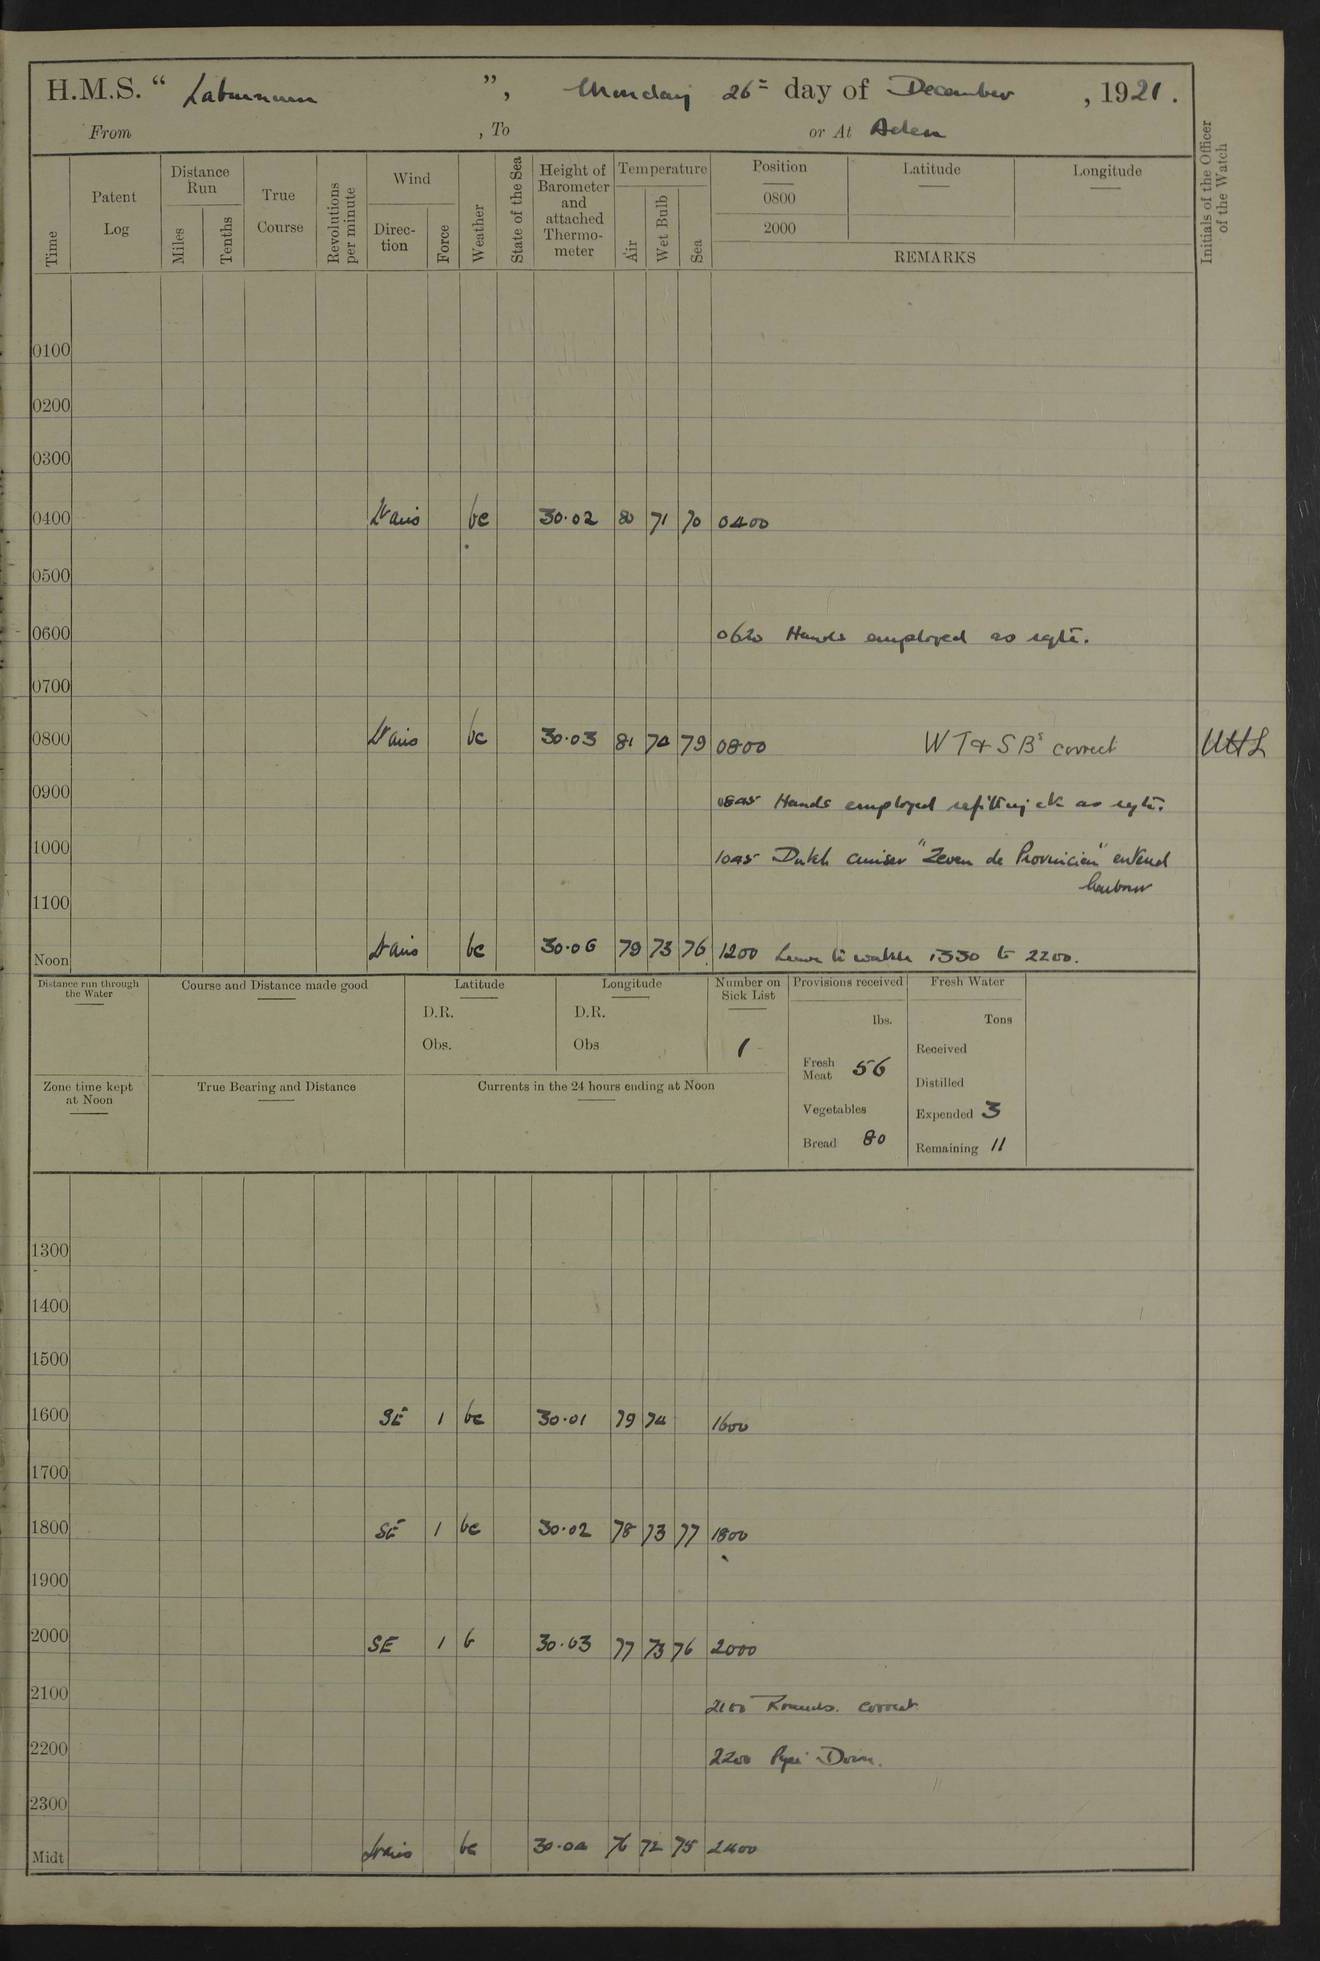 H.M.S. “ Laburnum ”, Monday 26th day of December, 1921.
From , To or At Aden
Time
Patent Log
Distance Run
Miles
Tenths
True Course
Revolutions per minute
Wind
Direction
Force
Weather
State of the Sea
Height of Barometer and attached Thermometer
Temperature
Air
Wet Bulb
Sea
Position
0800
2000
Latitude
Longitude
REMARKS
Initials of the Officer of the Watch
0100
0200
0300
0400 Lt airs bc 30.02 80 71 70 0400
0500
0600 0620 Hands employed as reqte.
0700
0800 Lt airs bc 30.03 81 74 79 0800 WT & SBs correct
0900 0845 Hands employed refitting etc as reqte.
1000 1045 Dutch cruiser "Zeven de Provincien" entered
harbour
1100
Noon Lt airs bc 30.06 79 73 76 1200 Leave to watch 1330 to 2200.
Distance run through the Water
Course and Distance made good
Latitude
D.R.
Obs.
Longitude
D.R.
Obs
Number on Sick List
1
Provisions received
lbs.
Fresh Meat 56
Vegetables
Bread 80
Fresh Water
Tons
Received
Distilled
Expended 3
Remaining 11
Zone time kept at Noon
True Bearing and Distance
Currents in the 24 hours ending at Noon
1300
1400
1500
1600 SE 1 bc 30.01 79 74 1600
1700
1800 SE 1 bc 30.02 78 73 77 1800
1900
2000 SE 1 b 30.03 77 73 76 2000
2100 2100 Rounds. correct
2200 2200 Pipe Down.
2300
Midt Lt airs bc 30.04 76 72 75 2400